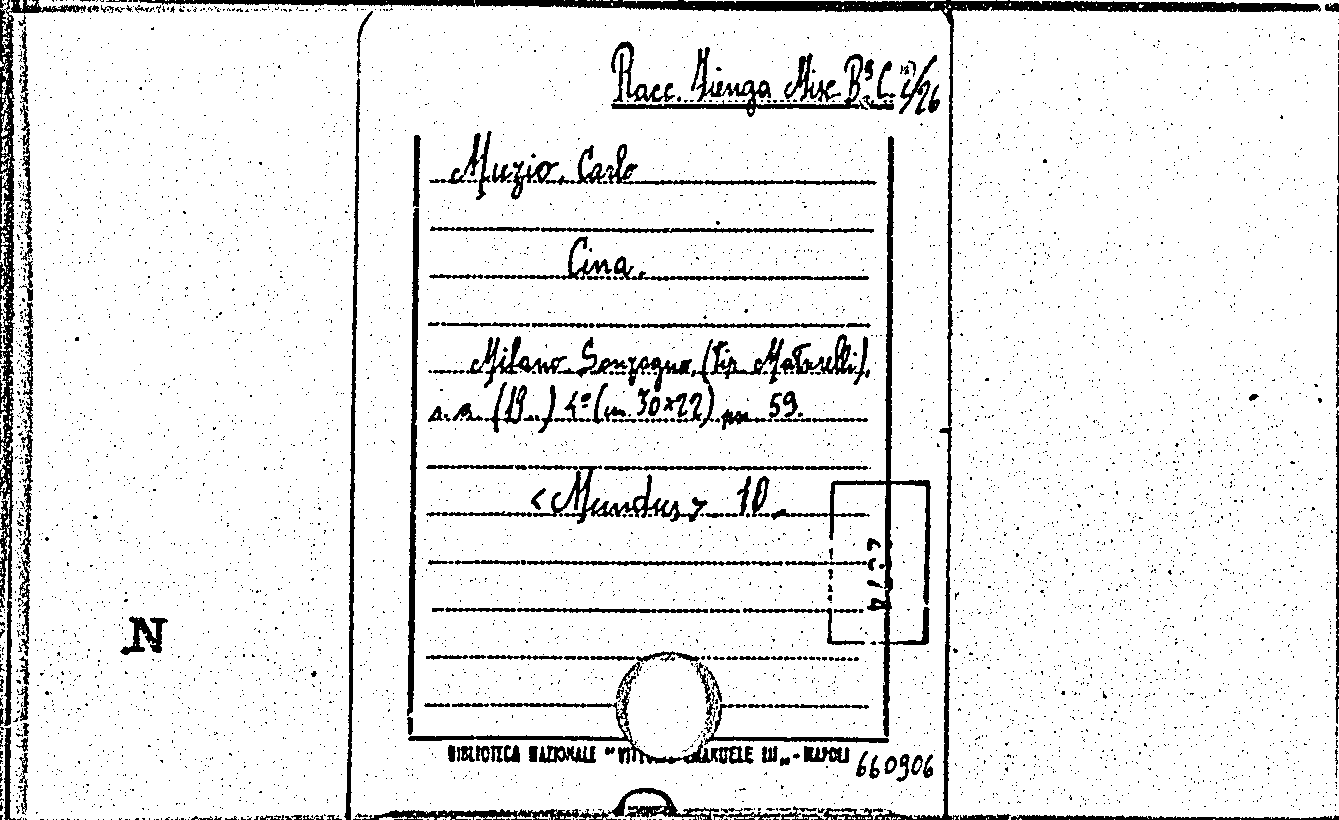 Racc. Vienga Misc B³ C. 2/26
Muzio, Carlo
Cina.
Milano. Sonzogno, (Tip. Matarelli).
s. a. (19..) 4° (cm. 30×22) pp. 59.
<Mundus> 10.
N
BIBLIOTECA NAZIONALE "VITT EMANUELE III„ - NAPOLI
660906